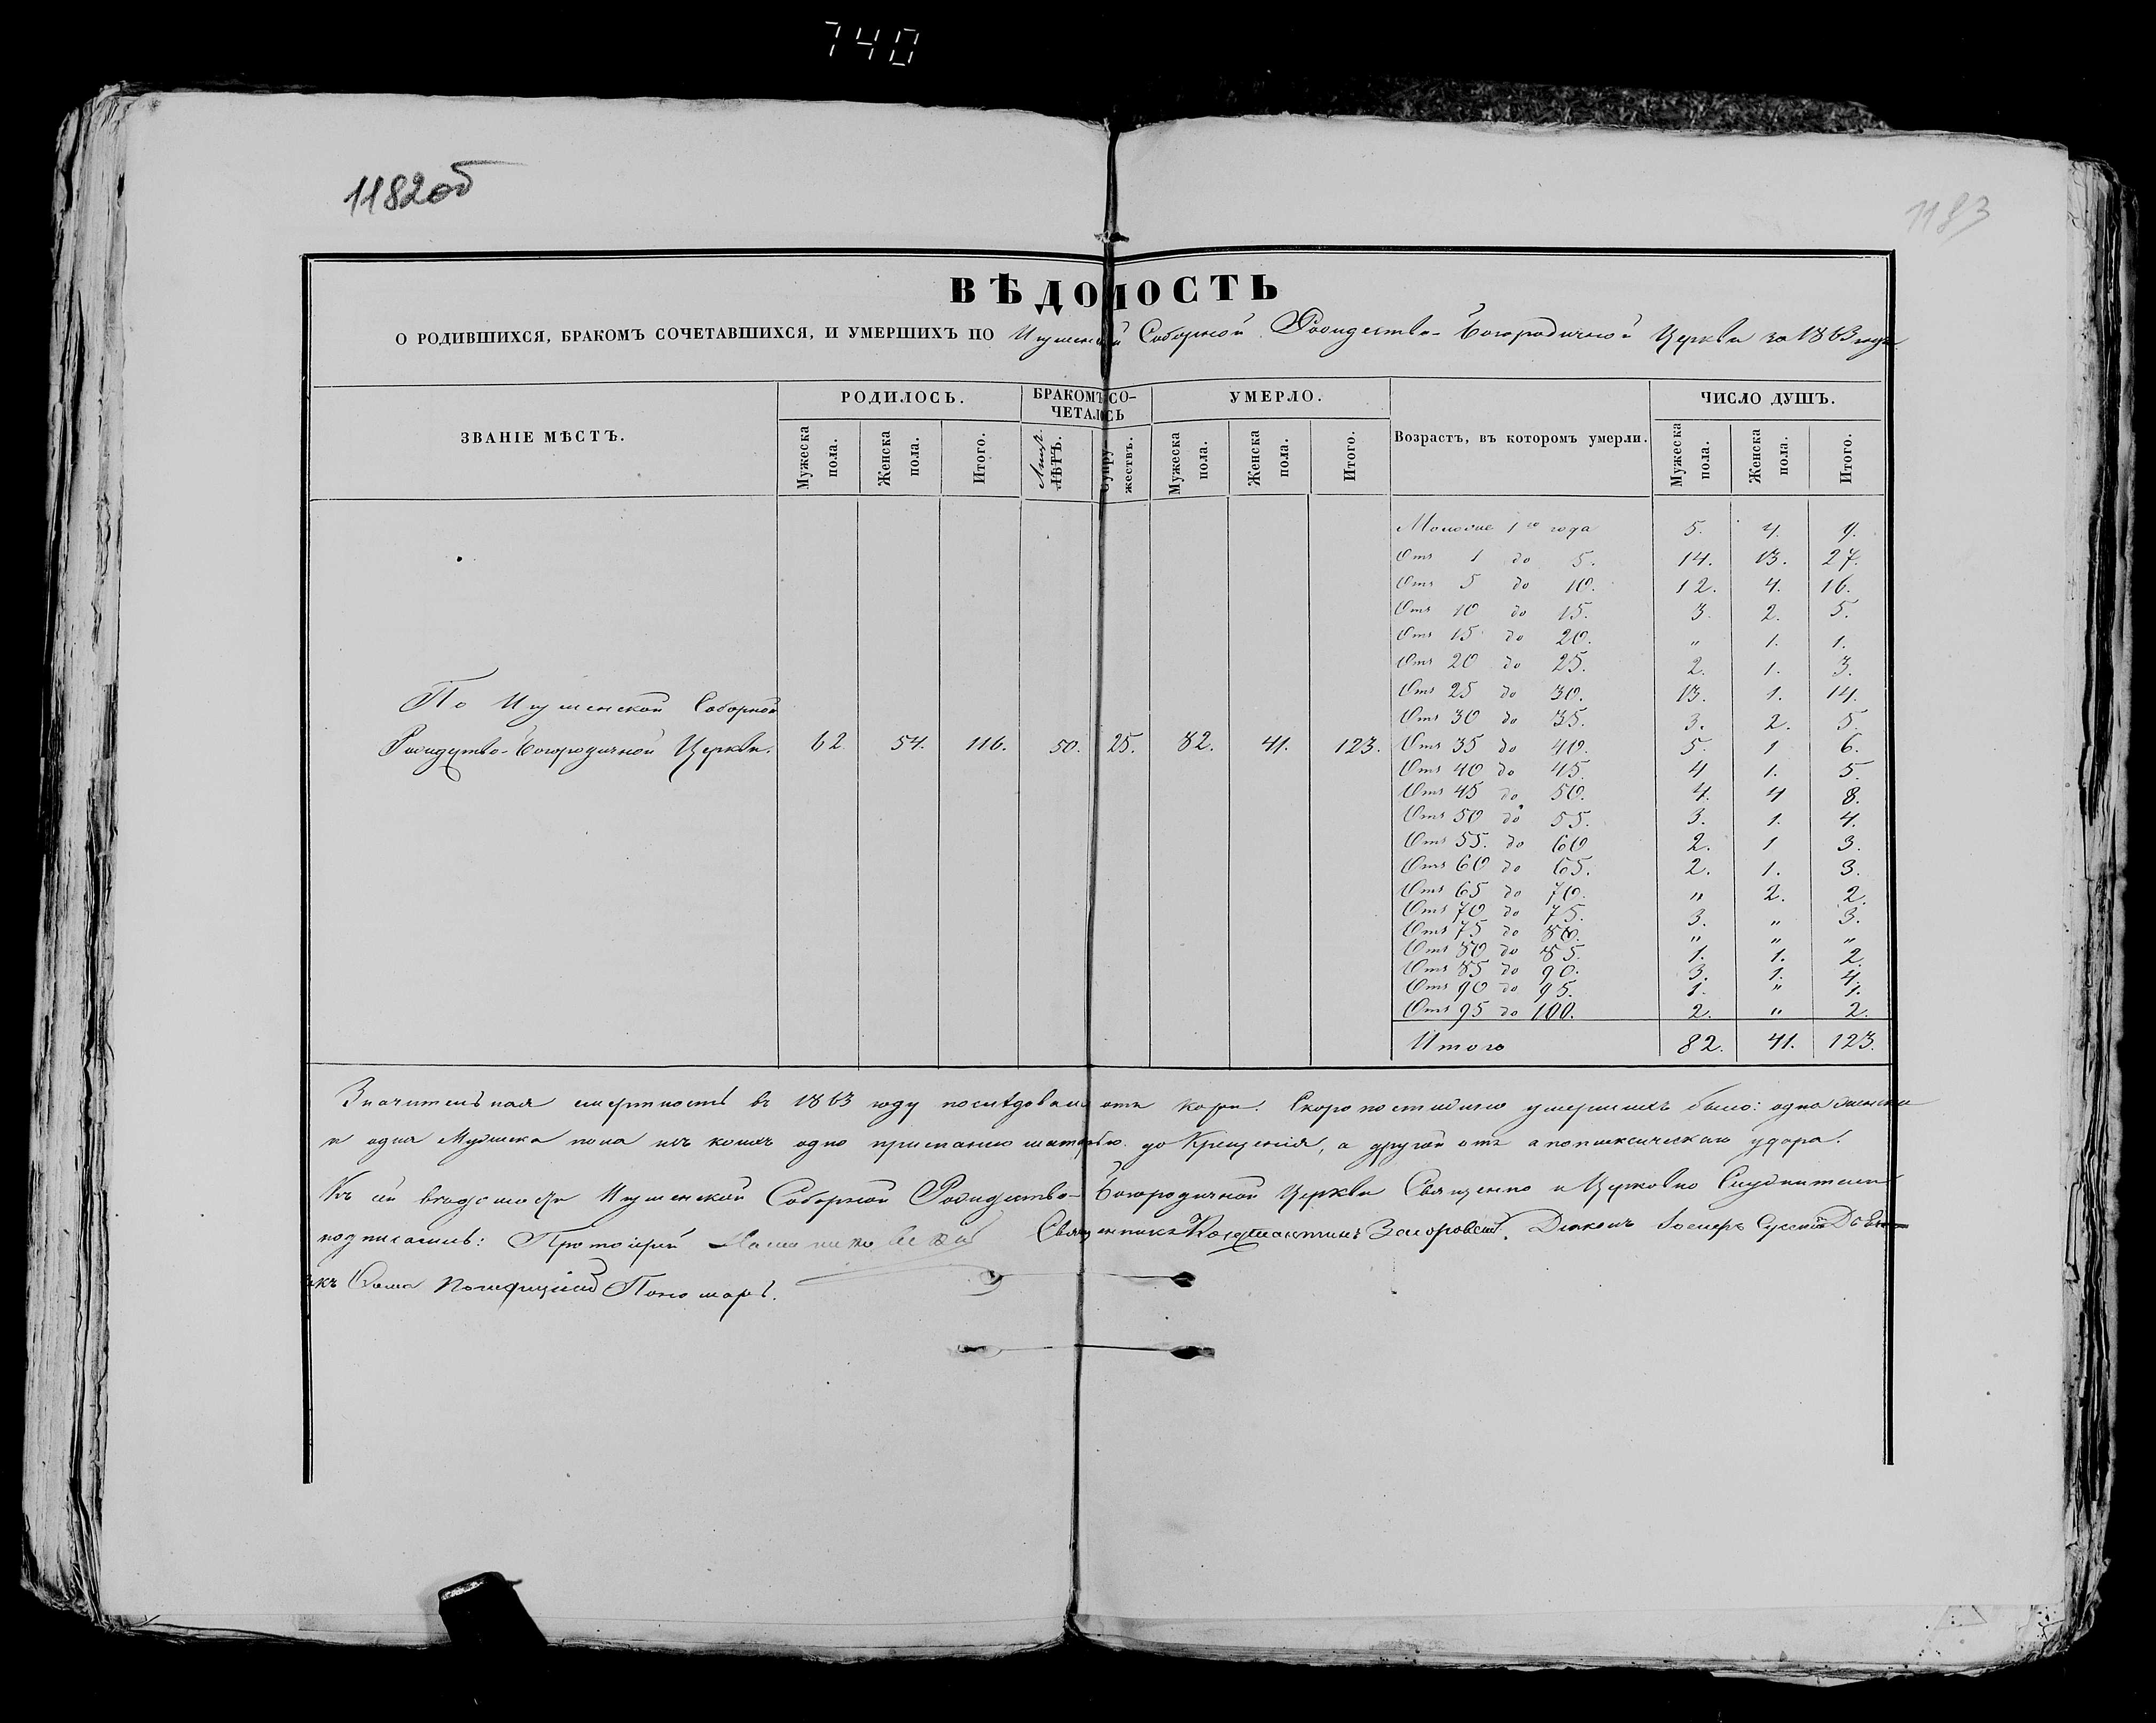 740
1182об
1183
ВѢДОМОСТЬ
О РОДИВШИХСЯ, БРАКОМЪ СОЧЕТАВШИХСЯ, И УМЕРШИХЪ ПО Игуменской Соборной Рождество-Богородичной Церкви за 1863 годъ
ЗВАНІЕ МѢСТЪ. РОДИЛОСЬ. БРАКОМЪ СОЧЕТАЛОСЬ УМЕРЛО. Возрастъ, въ которомъ умерли. ЧИСЛО ДУШЪ.
Мужеска пола. Женска пола. Итого. ЛѢТЪ. Супружествъ. Мужеска пола. Женска пола. Итого. Мужеска пола. Женска пола. Итого.
1го года 5. 4. 9.
Отъ 1 до 5. 14. 13. 27.
Отъ 5 до 10. 12. 4. 16.
Отъ 10 до 15. 3. 2. 5.
Отъ 15 до 20. " 1. 1.
Отъ 20 до 25. 2. 1. 3.
Отъ 25 до 30. 13. 1. 14.
Отъ 30 до 35. 3. 2. 5
По Игуменской Соборной
Рождество-Богородичной Церкви. 62. 54. 116. 50. 25. 82. 41. 123.
Отъ 35 до 40. 5. 1 6.
Отъ 40 до 45. 4 1. 5.
Отъ 45 до 50. 4. 4 8.
Отъ 50 до 55. 3. 1. 4.
Отъ 55. до 60 2. 1 3.
Отъ 60 до 65. 2. 1. 3.
Отъ 65 до 70. " 2. 2.
Отъ 70 до 75. 3. " 3.
Отъ 75 до 80. " " "
Отъ 80 до 85. 1. 1. 2.
Отъ 85 до 90. 3. 1. 4.
Отъ 90 до 95. 1. " 1.
Отъ 95 до 100. 2. " 2.
Итого 82. 41. 123.
Значительная смертность въ 1863 году послѣдовала отъ кори. Скоропостижно умершихъ было: одна женска
и одна Мужеска пола изъ коихъ одно приспано матерью до Крещенія, а другой отъ апоплексическаго удара.
Къ сей вѣдомости Игуменской Соборной Рождество-Богородичной Церкви Священно и Церковно Служители
подписались: Протоіерей Священникъ Константинъ Загоровскій. Діаконъ Дья-
чекъ Ѳома Пономарь.